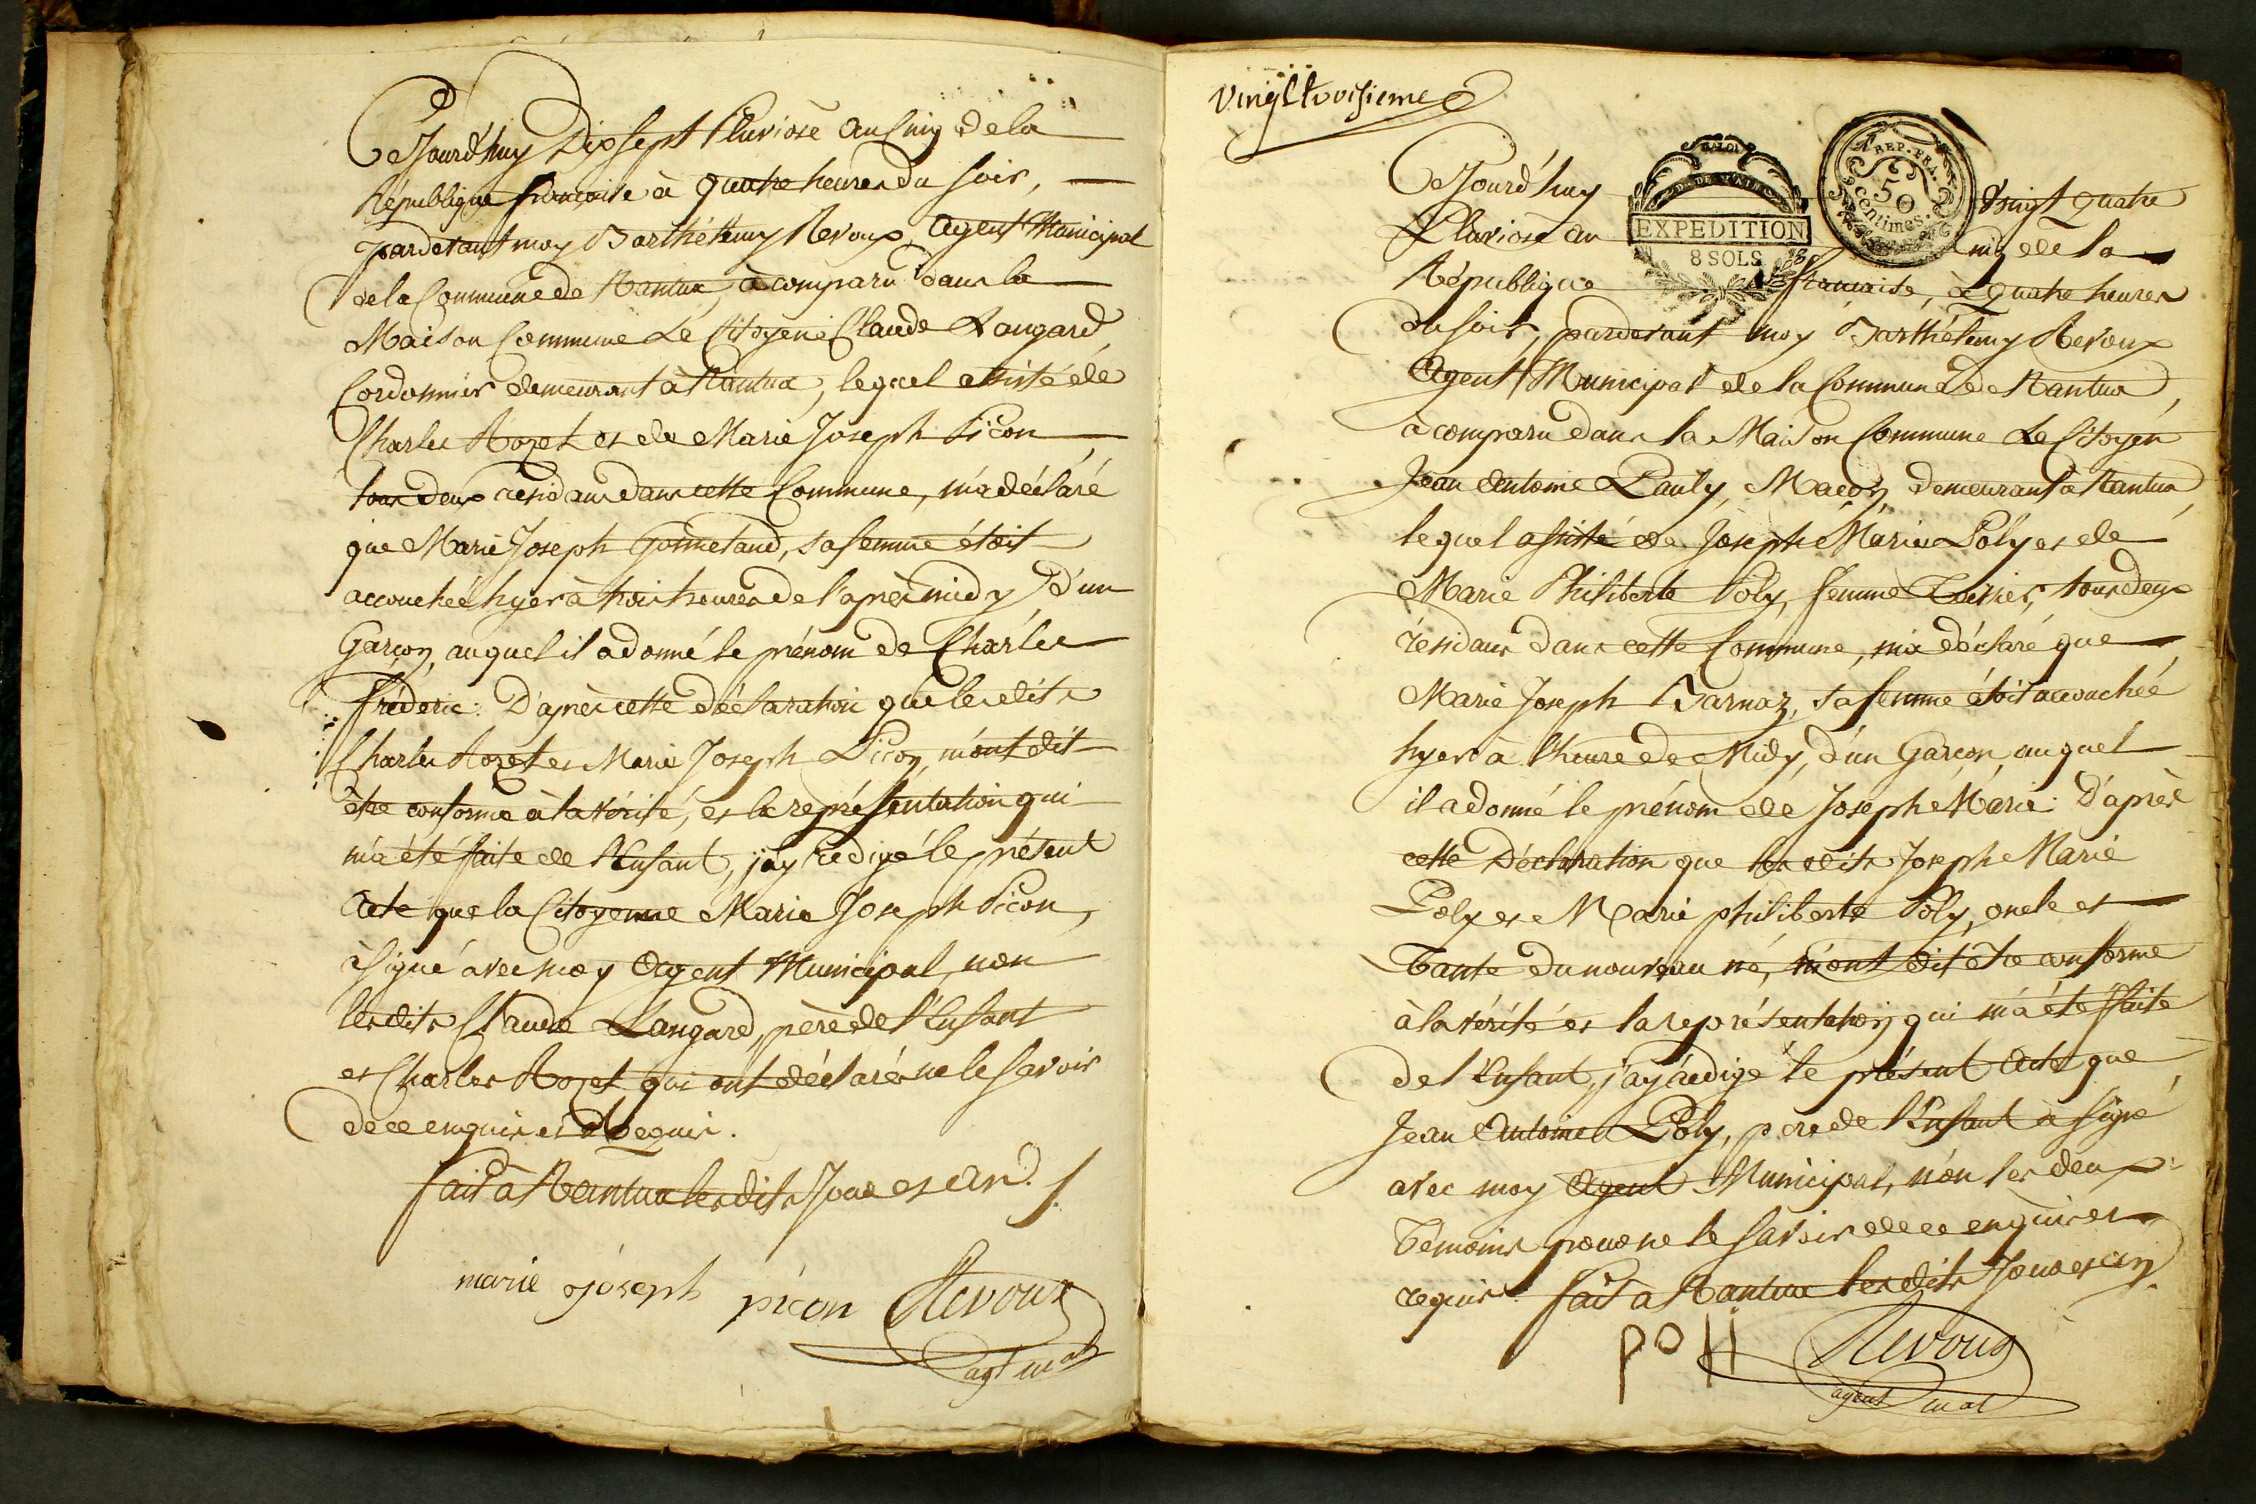 Cejourd'huy Dix sept Pluviose an Cinq de la
République française à quatre heures du soir,
pardevant moy Barthélemy Revoux, Agent Municipal
de la Commune de Nantua, a comparu dans la
Maison Commune Le Citoyen Claude Langard,
Cordonnier demeurant à Nantua, lequel assisté de
Charles Rozet et de Marie Joseph Picon,
tous deux résidans dans cette Commune, m'a déclaré
que Marie Joseph Gonnetand, sa femme étoit
accouchée hyer à trois heures de l'après midy d'un
Garçon, auquel il a donné le prénom de Charles
fréderic. D'après cette déclaration que lesdits
Charles Rozet et Marie Joseph Picon, m'ont dit
être conforme à la vérité, et la représentation qui
m'a été faite de l'Enfant, j'ay redigé le présent
Acte que la Citoyenne Marie Joseph Picon,
à signé avec moy Agent Municipal, non
lesdits Claude Langard, père de l'Enfant
et Charles Rozet, qui ont déclarés ne le savoir
de ce enquis et requis.
fait à Nantua lesdits Jour et an.
marie joseph picon Revoux
agt mal
vingt troisieme
Cejourd'huy vingt quatre
EXPEDITION
8 SOLS
REP. FRA.
50
Centimes.
Pluviose an Cinq de la
République française, à quatre heures
du soir, pardevant moy Barthélemy Revoux
Agent Municipal de la Commune de Nantua,
a comparu dans la Maison Commune Le Citoyen
Jean Antoine Pauly, Maçon, demeurant à Nantua,
lequel assisté de Joseph Marie Poly et de
Marie Philiberte Poly, femme tous deux
résidans dans cette Commune, m'a déclaré que
Marie Joseph Barnaz, sa femme étoit accouchée
hyer à l'heure de Midy, d'un Garçon, auquel
il a donné le prénom de Joseph Marie. D'après
cette Déclaration que lesdits Joseph Marie
Poly et Marie philiberte Poly, oncle et
Tante du nouveau né, m'ont dit être conforme
à la vérité et la représentation qui m'a été faite
de l'Enfant, j'ay redigé le présent Acte que
Jean Antoine Poly, pere de l'Enfant à signé
avec moy Agent Municipal, non les deux
Témoins pour ne le savoir de ce enquis et
requis. fait à Nantua lesdits Jour et an.
poli Revoux
agent mal